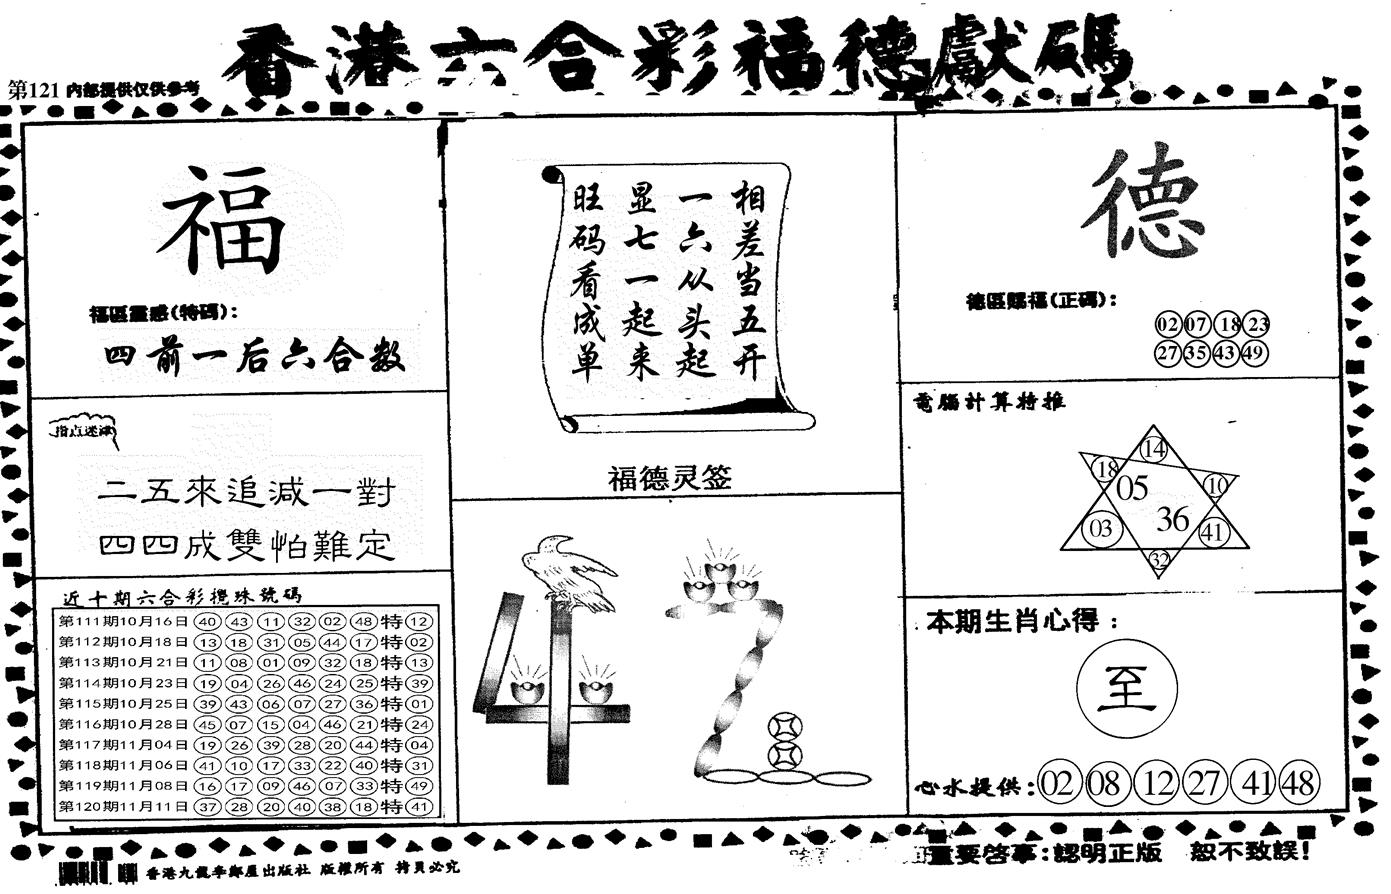 香港六合彩福德獻碼
第121 内部提供仅供参考
福
福區靈感(特碼):
四前一后六合数
指点迷津
二五來追減一對
四四成雙怕難定
近十期六合彩攪珠號碼
第111期10月16日 40 43 11 32 02 48 特 12
第112期10月18日 13 18 31 05 44 17 特 02
第113期10月21日 11 08 01 09 32 18 特 13
第114期10月23日 19 04 26 46 24 25 特 39
第115期10月25日 39 43 06 07 27 36 特 01
第116期10月28日 45 07 15 04 46 21 特 24
第117期11月04日 19 26 39 28 20 44 特 04
第118期11月06日 41 10 17 33 22 40 特 31
第119期11月08日 16 17 09 46 07 33 特 49
第120期11月11日 37 28 20 40 38 18 特 41
相差当五开
一六从头起
显七一起来
旺码看成单
福德灵签
42
德
德區賜福(正碼):
02 07 18 23
27 35 43 49
電腦計算特推
14
18
05
10
36
03
41
32
本期生肖心得:
至
心水提供: 02 08 12 27 41 48
香港九龍 出版社 版權所有 拷貝必究
重要啓事:認明正版 恕不致誤!